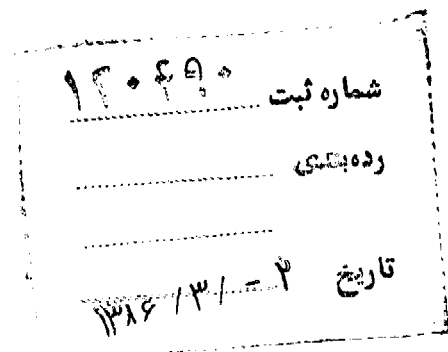 شماره ثبت ۱۲۰۴۹۰
رده‌بندی
تاریخ ۲ - /۳/ ۱۳۸۶